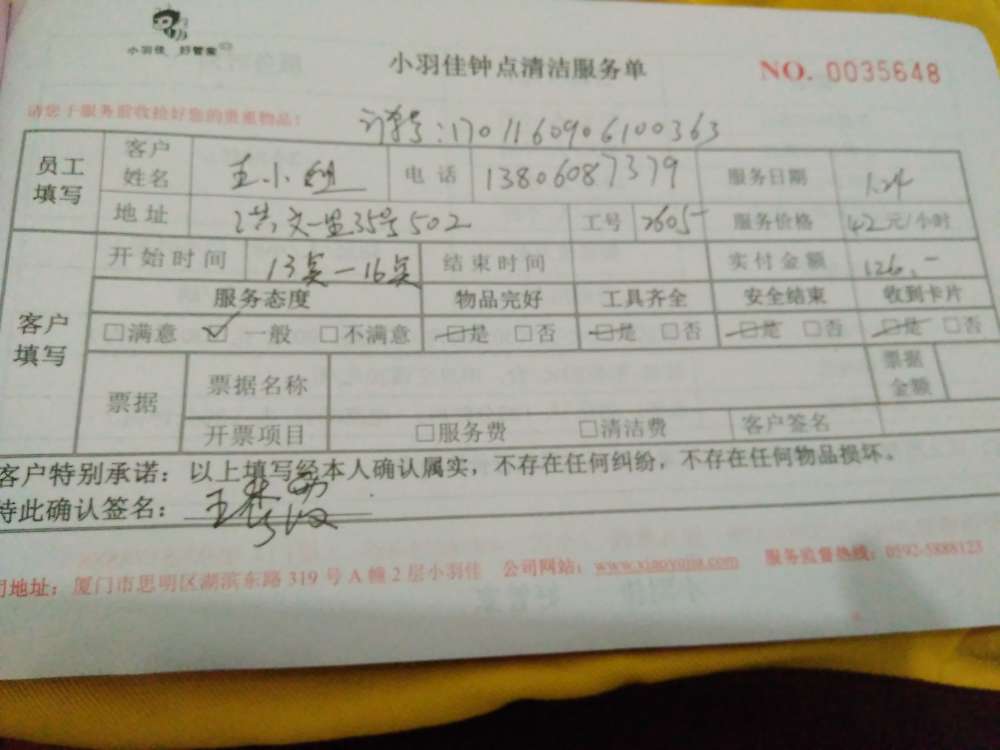 小羽佳 好管家
小羽佳钟点清洁服务单
NO. 0035648
请您于服务前收拾好您的贵重物品!
订单号:1701160906100363
员工填写 客户姓名 王小 电话 13806087379 服务日期 1.24
地址 洪文一里35号502 工号 2605 服务价格 42元/小时
客户填写 开始时间 13点-16点 结束时间 实付金额 126.-
服务态度 物品完好 工具齐全 安全结束 收到卡片
□满意 ☑一般 □不满意 □是 □否 □是 □否 □是 □否 □是 □否
票据 票据名称 票据金额
开票项目 □服务费 □清洁费 客户签名
客户特别承诺:以上填写经本人确认属实,不存在任何纠纷,不存在任何物品损坏。
特此确认签名:王
司地址:厦门市思明区湖滨东路 319 号 A 幢 2 层小羽佳 公司网站:www.xiaoyujia.com 服务监督热线:0592-5888123